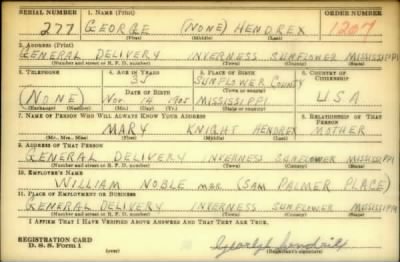 SERIAL NUMBER 1. NAME (Print) ORDER NUMBER
277 GEORGE (NONE) HENDREX 1207
(First) (Middle) (Last)
2. ADDRESS (Print)
GENERAL DELIVERY INVERNESS SUNFLOWER MISSISSIPPI
(Number and street or R. F. D. number) (Town) (County) (State)
3. TELEPHONE 4. AGE IN YEARS 5. PLACE OF BIRTH 6. COUNTRY OF CITIZENSHIP
35 SUNFLOWER COUNTY
DATE OF BIRTH (Town or county)
(NONE) Nov. 14 1905 MISSISSIPPI USA
(Exchange) (Number) (Mo.) (Day) (Yr.) (State or country)
7. NAME OF PERSON WHO WILL ALWAYS KNOW YOUR ADDRESS 8. RELATIONSHIP OF THAT PERSON
MARY KNIGHT HENDREX MOTHER
(Mr., Mrs., Miss) (First) (Middle) (Last)
9. ADDRESS OF THAT PERSON
GENERAL DELIVERY INVERNESS SUNFLOWER MISSISSIPPI
(Number and street or R. F. D. number) (Town) (County) (State)
10. EMPLOYER'S NAME
WILLIAM NOBLE (SAM PALMER PLACE)
11. PLACE OF EMPLOYMENT OR BUSINESS
GENERAL DELIVERY INVERNESS SUNFLOWER MISSISSIPPI
(Number and street or R. F. D. number) (Town) (County) (State)
I AFFIRM THAT I HAVE VERIFIED ABOVE ANSWERS AND THAT THEY ARE TRUE.
REGISTRATION CARD
D. S. S. Form 1